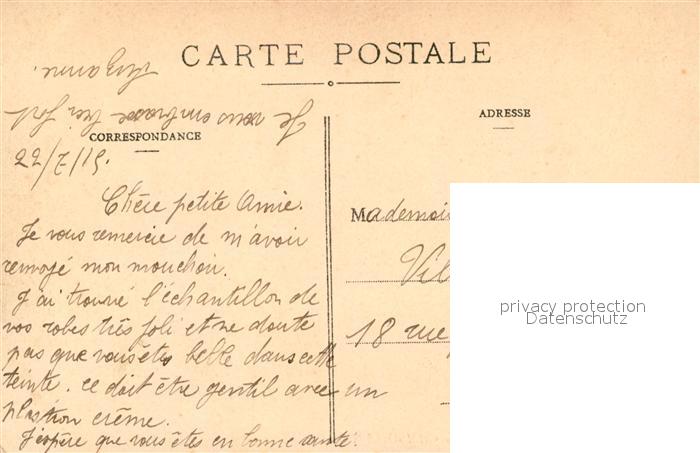 CARTE POSTALE
Je vous embrasse très fort
CORRESPONDANCE
22/7/15.
Chère petite Amie.
Je vous remercie de m'avoir
renvoyé mon mouchoir.
J'ai trouvé l'échantillon de
vos robes très joli et ne doute
pas que vous êtes belle dans cette
teinte. ce doit être gentil avec un
plastron crème.
J'espère que vous êtes en bonne santé.
ADRESSE
Mademoi
Vil
18 rue
privacy protection
Datenschutz